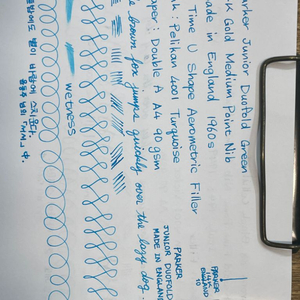 arker Junior Duofold Green
K Gold Medium Point Nib
ade in England 1960s
Time U Shape Aerometric Filler
nk : Pelikan 4001 Turquoise
aper : Double A A4 90 gsm
brown fox jumps quickly over the lazy dog.
PARKER
14K
ENGLAND
10
PARKER
JUNIOR DUOFOLD
MADE IN ENGLAND
wetness
밤에도 별이 바람에 스치운다.
윤동주 님의 「서시」 中.